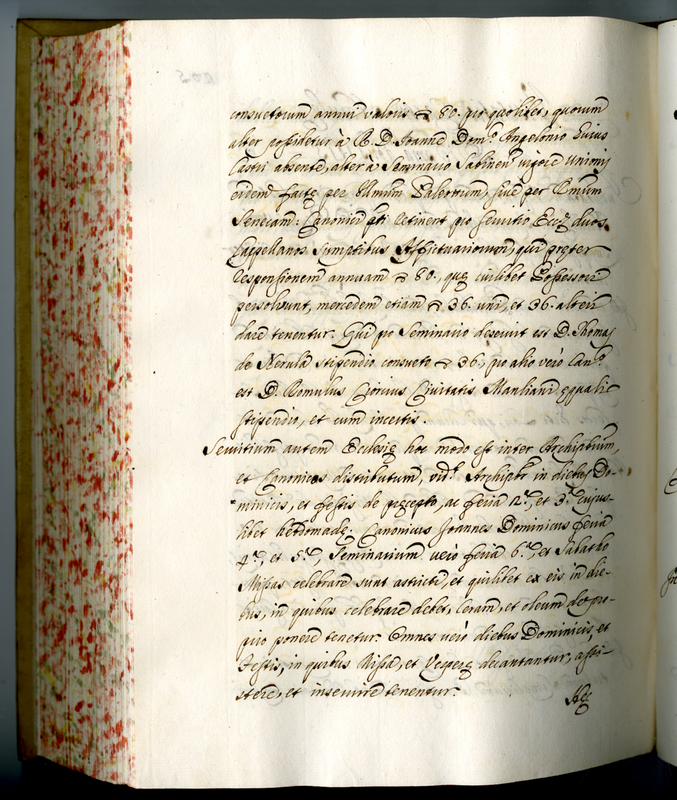 consuetorum annui valoris 80. pro quolibet, quorum
alter possidetur à R. D. Ioanne Dom.co Angelonio huius
Castri absente, alter à Seminario Sabinen vigore Unionis
eidem factę per Illmum Paleottum, sive per Emum
Senecam: Canonici pti retinent pro servitio Ecclę duos
Cappellanos sumptibus Affictuariorum, qui pręter
responsionem annuam 80., quę cuilibet Possessori
persolvunt, mercedem etiam 36. uni, et 36. alteri
dare tenentur. Qui pro Seminario deservit est D. Thomas
de Nerula stipendio consueto 36., pro alio verò Can.co
est D. Romulus Civitatis Manliani ęquali
stipendio, et cum incertis.
Servitium autem Ecclesię hoc modo est inter Archiptrum,
et Canonicos distributum, vidt Archipbr in diebus Do-
minicis, et festis de pręcepto, ac feria 2.a, et 3.a cujus-
libet hebdomadę; Canonicus Joannes Dominicus feria
4.a, et 5.a, Seminarium verò feria 6.a, et Sabatho
Missas celebrare sunt astricti, et quilibet ex eis in die-
bus, in quibus celebrare debet, ceram, et oleum de pro-
prio ponere tenetur. Omnes verò diebus Dominicis, et
Festis, in quibus Missa, et Vesperę decantantur, assi-
stere, et inservire tenentur.
Hęc